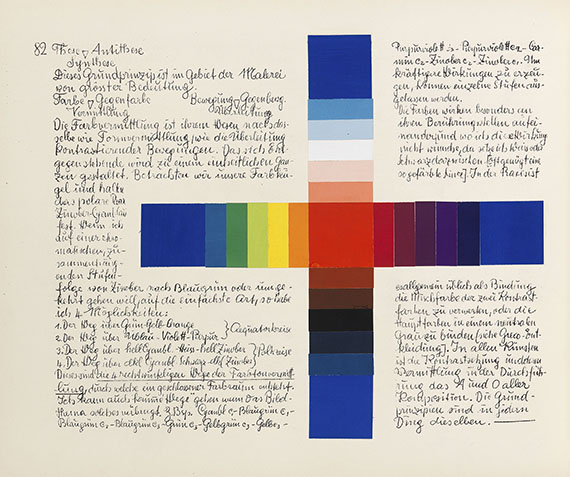 82 These ▽ Antithese
Synthese
Dieses Grundprinzip ist im Gebiet der Malerei
von grösster Bedeutung.
Farbe ▽ Gegenfarbe Bewegung ▽ Gegenbeweg.
Vermittlung
Die Farbvermittlung ist ihrem Wesen nach
wie Formvermittlung, wie die Überleitung
kontrastierender Bewegungen. Das sich Ent-
gegenstehende wird zu einem einheitlichen Gan-
zen gestaltet. Betrachten wir unsere Farbku-
gel und halte
das polare
Zinober-
fest. Wenn ich
auf einer chro-
matischen, zu-
sammenhäng-
enden Stufen-
folge von Zinober nach Blaugrün oder umge-
kehrt gehen will, auf die einfachste Art, so habe
ich 4 Möglichkeiten:
1. Der Weg über Grün-Gelb-Orange
2. Der Weg über Violett-Purpur } Aequatorkreise
3. Der Weg über hell Weiss-hell Zinober
4. Der Weg über dkl. Schwarz dkl Zinober } Polkreise
Dies sind die 4 rechtwinkligen Wege der Farbtonvermitt-
lung, durch welche ein geschlossener Farbraum entsteht.
Ich kann auch krumme Wege gehen wenn das Bild-
solches verlangt. z. Bsp.
Blaugrün - Blaugrün - Grün - Gelbgrün - Gelb -
Purpurviolett - Purpurviolett - Car-
min - Zinober - Zinober. Um
kräftigere Wirkungen zu erzeu-
gen, können einzelne Stufen aus-
gelassen werden.
Die Farben wirken besonders an
ihren Berührungsstellen aufei-
nander und wo ich die Wirkung
nicht wünsche, da
so gefärbte Linie]. In der Praxis ist
es allgemein üblich als Bindung
die Mischfarbe der zwei Kontrast-
farben zu verwerten, oder die
Hauptfarben in einem neutralen
Grau zu binden
In allen Künsten
ist die Kontrastsetzung und deren
Vermittlung in der Durchfüh-
rung das A und O aller
Komposition. Die Grund-
prinzipien sind in jedem
Ding dieselben.